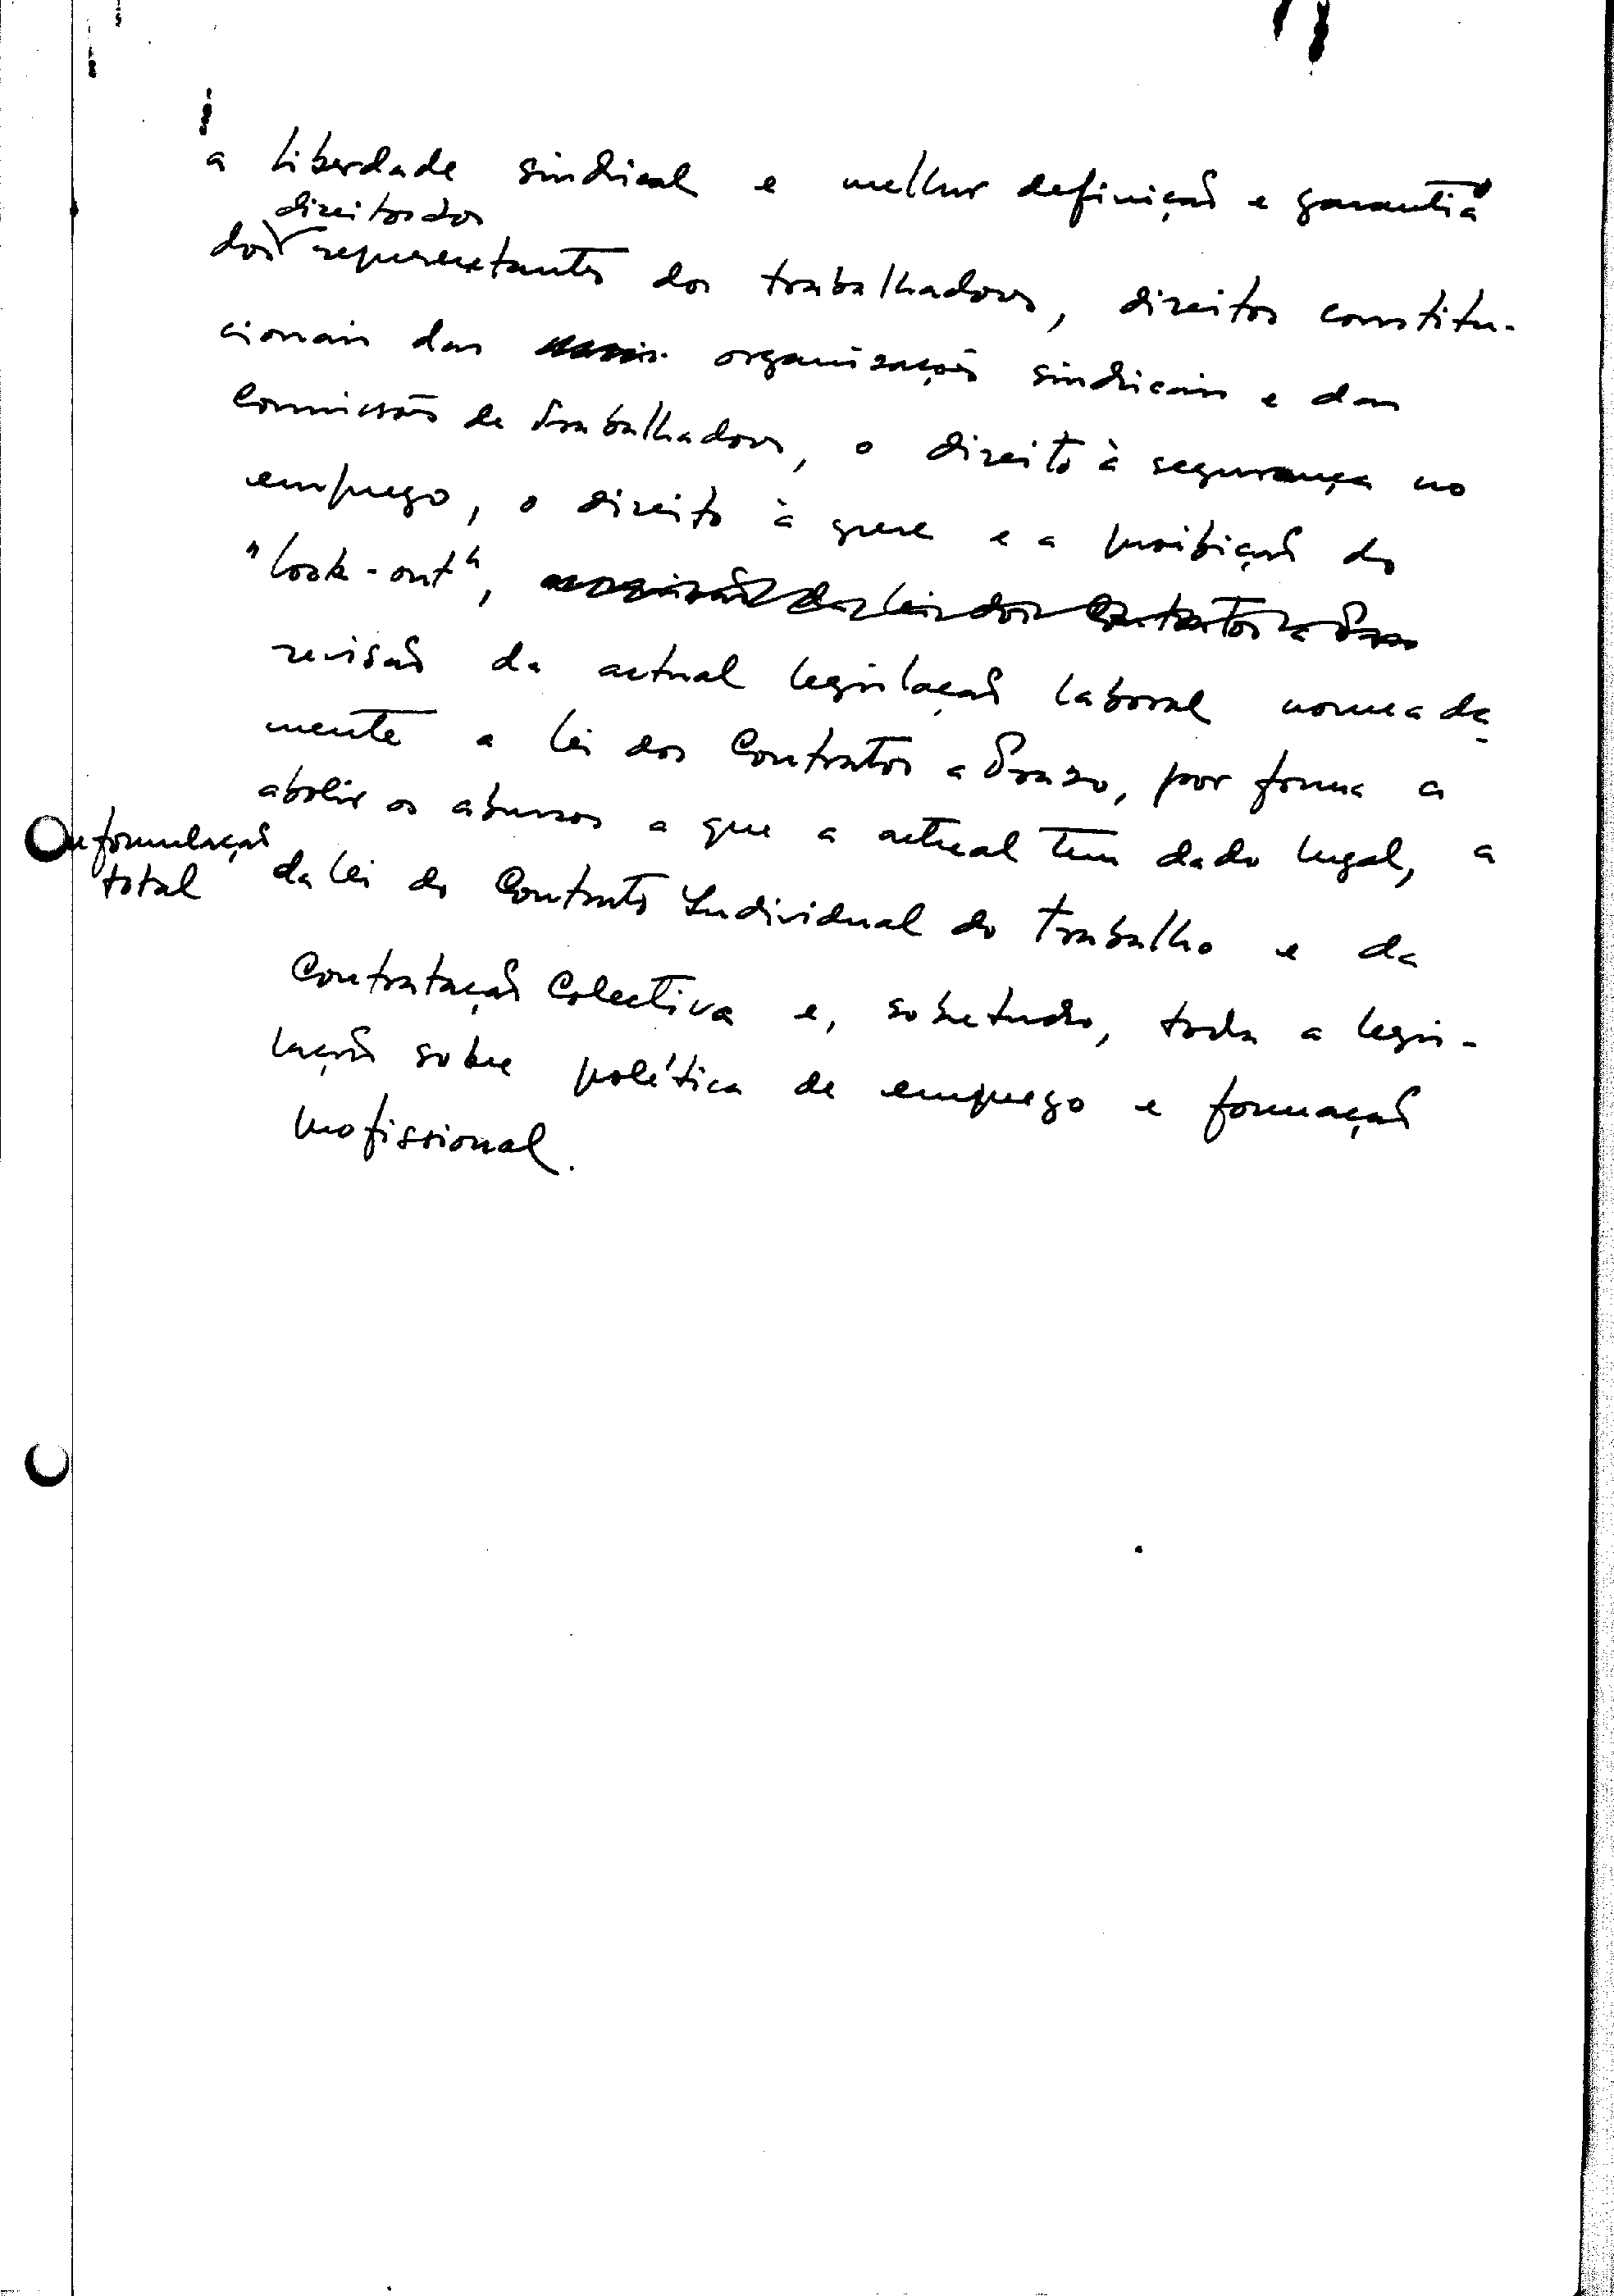 a liberdade sindical e melhor definição e garantia
direitos dos
dos representantes dos trabalhadores, direitos constitu-
cionais das organizações sindicais e das
Comissões de Trabalhadores, o direito à segurança no
emprego, o direito à greve e a proibição do
"look-out", revisão das leis dos Contratos a Prazo
revisão da actual legislação laboral nomeada
mente a lei dos Contratos a Prazo, por forma a
abolir os abusos a que a actual tem dado lugal, a
reformulação
total
da lei do Contrato Individual do Trabalho e da
Contratação Colectiva e, sobretudo, toda a legis-
lação sobre política de emprego e formação
profissional.